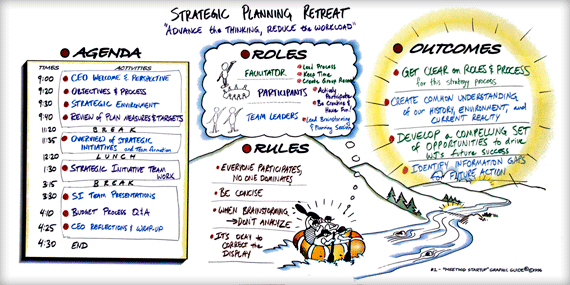 STRATEGIC PLANNING RETREAT
"ADVANCE the THINKING, REDUCE the WORKLOAD"
AGENDA
TIMES ACTIVITIES
9:00 CEO WELCOME & PERSPECTIVE
9:20 OBJECTIVES & PROCESS
9:30 STRATEGIC ENVIRONMENT
9:40 REVIEW OF PLAN MEASURES & TARGETS
11:20 BREAK
11:35 OVERVIEW OF STRATEGIC
INITIATIVES and Team Formation
12:20 LUNCH
1:30 STRATEGIC INITIATIVE TEAM
WORK
3:15 BREAK
3:30 SI TEAM PRESENTATIONS
4:10 BUDGET PROCESS Q&A
4:25 CEO REFLECTIONS & WRAP-UP
4:30 END
ROLES
FACILITATOR
Lead Process
Keep Time
Create Group Record
PARTICIPANTS
Actively
Participate
Be Creative &
Have Fun!
TEAM LEADERS
Lead Brainstorming
& Planning Session
RULES
EVERYONE PARTICIPATES,
NO ONE DOMINATES
BE CONCISE
WHEN BRAINSTORMING
DON'T ANALYZE
IT'S OKAY TO
CORRECT the
DISPLAY
OUTCOMES
GET CLEAR on ROLES & PROCESS
for this strategy process
CREATE COMMON UNDERSTANDING
of our HISTORY, ENVIRONMENT, and
CURRENT REALITY
DEVELOP a COMPELLING SET
of OPPORTUNITIES to drive
WJ's FUTURE SUCCESS
IDENTIFY INFORMATION GAPS
FUTURE ACTION
#1 - "MEETING STARTUP" GRAPHIC GUIDE ©1996